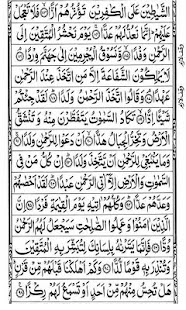 الشَّيٰطِيْنَ عَلَى الْكٰفِرِيْنَ تَؤُزُّهُمْ اَزًّا ۙ فَلَا تَعْجَلْ
عَلَيْهِمْ ؕ اِنَّمَا نَعُدُّ لَهُمْ عَدًّا ۚ يَوْمَ نَحْشُرُ الْمُتَّقِيْنَ اِلَى
الرَّحْمٰنِ وَفْدًا ۙ وَّنَسُوْقُ الْمُجْرِمِيْنَ اِلٰى جَهَنَّمَ وِرْدًا ۘ
لَا يَمْلِكُوْنَ الشَّفَاعَةَ اِلَّا مَنِ اتَّخَذَ عِنْدَ الرَّحْمٰنِ
عَهْدًا ۘ وَقَالُوا اتَّخَذَ الرَّحْمٰنُ وَلَدًا ؕ لَقَدْ جِئْتُمْ
شَيْئًا اِدًّا ۙ تَكَادُ السَّمٰوٰتُ يَتَفَطَّرْنَ مِنْهُ وَ تَنْشَقُّ
الْاَرْضُ وَتَخِرُّ الْجِبَالُ هَدًّا ۙ اَنْ دَعَوْا لِلرَّحْمٰنِ وَلَدًا ۚ
وَمَا يَنْۢبَغِيْ لِلرَّحْمٰنِ اَنْ يَّتَّخِذَ وَلَدًا ؕ اِنْ كُلُّ مَنْ فِي
السَّمٰوٰتِ وَالْاَرْضِ اِلَّاۤ اٰتِي الرَّحْمٰنِ عَبْدًا ؕ لَقَدْ اَحْصٰىهُمْ
وَعَدَّهُمْ عَدًّا ؕ وَكُلُّهُمْ اٰتِيْهِ يَوْمَ الْقِيٰمَةِ فَرْدًا ۞ اِنَّ
الَّذِيْنَ اٰمَنُوْا وَعَمِلُوا الصّٰلِحٰتِ سَيَجْعَلُ لَهُمُ الرَّحْمٰنُ
وُدًّا ۞ فَاِنَّمَا يَسَّرْنٰهُ بِلِسَانِكَ لِتُبَشِّرَ بِهِ الْمُتَّقِيْنَ
وَتُنْذِرَ بِهٖ قَوْمًا لُّدًّا ۞ وَكَمْ اَهْلَكْنَا قَبْلَهُمْ مِّنْ قَرْنٍ ؕ
هَلْ تُحِسُّ مِنْهُمْ مِّنْ اَحَدٍ اَوْ تَسْمَعُ لَهُمْ رِكْزًا ۞